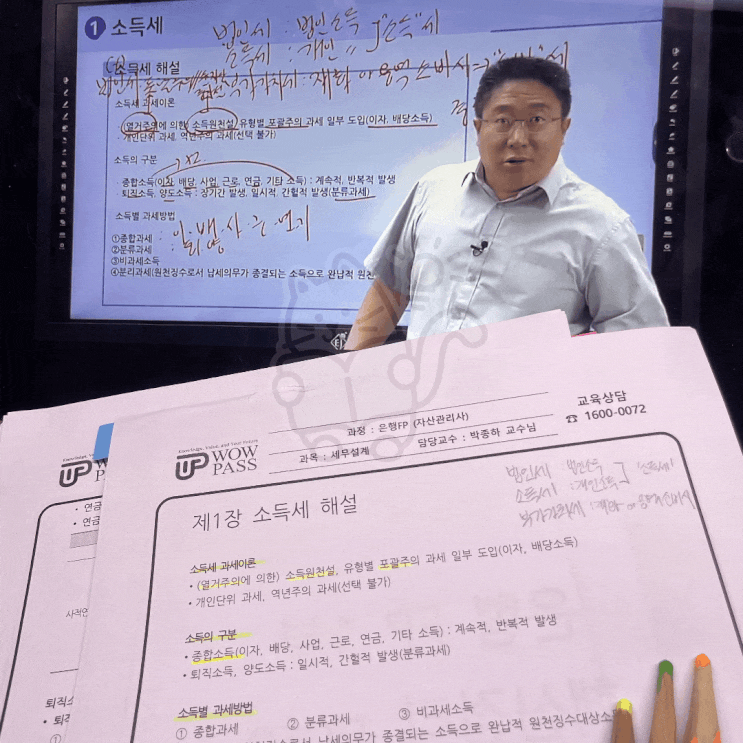 1 소득세
법인세 : 법인소득
소득세 : 개인 〃 "소득"세
부가가치세 : 재화 or 용역 소비시 →
소득세 해설
소득세 과세이론
(열거주의에 의한) 소득원천설, 유형별 포괄주의 과세 일부 도입(이자, 배당소득)
개인단위 과세, 역년주의 과세(선택 불가)
소득의 구분
· 종합소득(이자, 배당, 사업, 근로, 연금, 기타 소득) : 계속적, 반복적 발생
퇴직소득, 양도소득 : 장기간 발생, 일시적, 간헐적 발생(분류과세)
소득별 과세방법
①종합과세 : 이·배·사·근·연·기
②분류과세 :
③비과세소득
④분리과세(원천징수로서 납세의무가 종결되는 소득으로 완납적 원천
Knowledge, Value, and Your Future
UP WOW PASS
• 연금
• 연금
퇴직소
• 퇴직
①
Knowledge, Value, and Your Future
UP WOW PASS
과정 : 은행FP (자산관리사)
과목 : 세무설계
담당교수 : 박종하 교수님
교육상담
☎ 1600-0072
법인세 : 법인소득
소득세 : 개인소득 "소득세"
부가가치세 : 재화 or 용역
제1장 소득세 해설
소득세 과세이론
• (열거주의에 의한) 소득원천설, 유형별 포괄주의 과세 일부 도입(이자, 배당소득)
• 개인단위 과세, 역년주의 과세(선택 불가)
소득의 구분
• 종합소득(이자, 배당, 사업, 근로, 연금, 기타 소득) : 계속적, 반복적 발생
• 퇴직소득, 양도소득 : 일시적, 간헐적 발생(분류과세)
소득별 과세방법
① 종합과세 ② 분류과세 ③ 비과세소득
원천징수로서 납세의무가 종결되는 소득으로 완납적 원천징수대상소